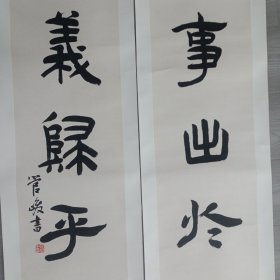 事出於
義歸乎
管峻書